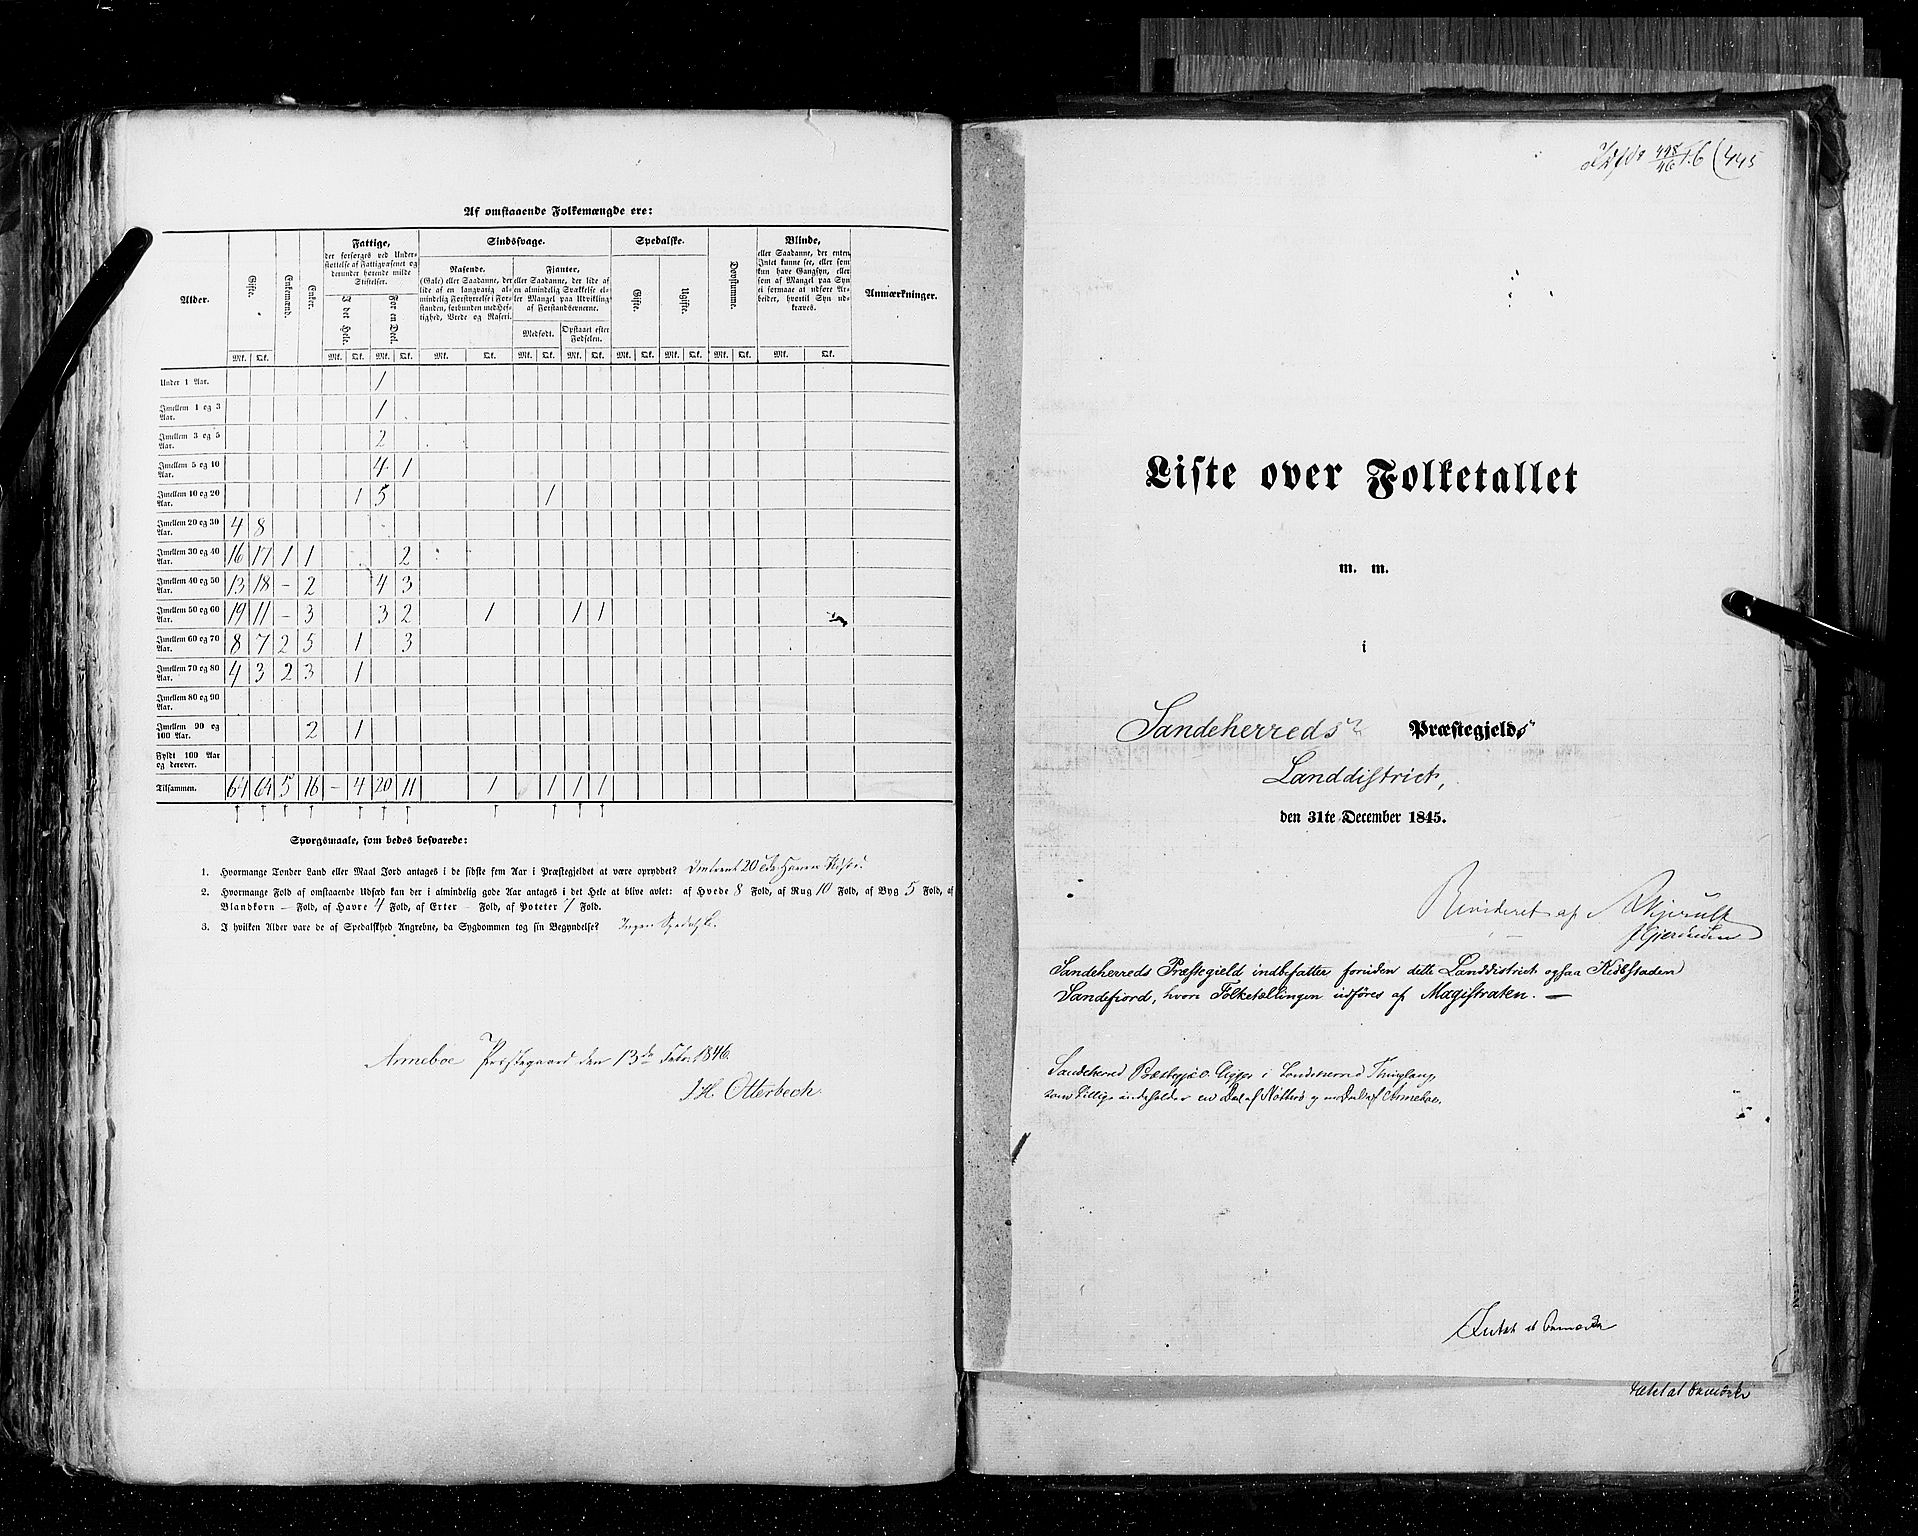 Af omstaaende Folkemængde ere:
Alder.
Gifte.
Enkemænd.
Enker.
Fattige,
der forsørges ved Under-
støttelse af Fattigvæsenet og
derunder hørende milde
Stiftelser.
I det Hele.
For en Deel.
Sindssvage.
Rasende.
(Gale) eller Saadanne, der
lide af en langvarig al-
mindelig Forstyrrelse i For-
standen, forbunden med Hef-
tighed, Vrede og Raseri.
Fianter,
eller Saadanne, der lide af
en almindelig Svækkelse el-
ler Mangel paa Udvikling
af Forstandsevnerne.
Medfødt.
Opstaaet efter
Fødselen.
Spedalske.
Gifte.
Ugifte.
Døvstumme.
Blinde,
eller Saadanne, der enten
Intet kunne see, eller som
kun have Gangsyn, eller
som af Mangel paa Syn
ei formaae at udføre Ar-
beider, hvortil Syn ud-
kræves.
Anmærkninger.
Mk. Qk. Mk. Qk. Mk. Qk. Mk. Qk. Mk. Qk. Mk. Qk. Mk. Qk. Mk. Qk. Mk. Qk. Mk. Qk.
Under 1 Aar. 1
Imellem 1 og 3 Aar. 1
Imellem 3 og 5 Aar. 2
Imellem 5 og 10 Aar. 4 1
Imellem 10 og 20 Aar. 1 5 1
Imellem 20 og 30 Aar. 4 8
Imellem 30 og 40 Aar. 16 17 1 1 2
Imellem 40 og 50 Aar. 13 18 - 2 4 3
Imellem 50 og 60 Aar. 19 11 - 3 3 2 1 1 1
Imellem 60 og 70 Aar. 8 7 2 5 1 3
Imellem 70 og 80 Aar. 4 3 2 3 1
Imellem 80 og 90 Aar.
Imellem 90 og 100 Aar. 2 1
Fyldt 100 Aar og derover.
Tilsammen. 64 64 5 16 - 4 20 11 1 1 1 1
Spørgsmaale, som bedes besvarede:
1. Hvormange Tønder Land eller Maal Jord antages i de sidste fem Aar i Præstegjeldet at være opryddet? Omtrent 20
2. Hvormange Fold af omstaaende Udsæd kan der i almindelig gode Aar antages i det Hele at blive avlet: af Hvede 8 Fold, af Rug 10 Fold, af Byg 5 Fold, af
Blandkorn — Fold, af Havre 4 Fold, af Erter — Fold, af Poteter 7 Fold.
3. I hvilken Alder vare de af Spedalskhed Angrebne, da Sygdommen tog sin Begyndelse? Ingen Spedalske.
Anneboe Præstegaard den 13de Febr. 1846.
J.H. Otterbech.
498/46 (445
Liste over Folketallet
m. m.
i
Sandeherreds Præstegjelds
Landdistrict,
den 31te December 1845.
Revideret af
Sandeherreds Præstegield indbefatter foruden dette Landdistrict ogsaa Kiøbstaden
Sandefiord, hvor Folketællingen udføres af Magistraten. —
Sandeherred Præstegjeld ligger i Sandeherred Thinglaug,
som tillige indeholder en Deel af Nøtterø og en Deel af Anneboe.